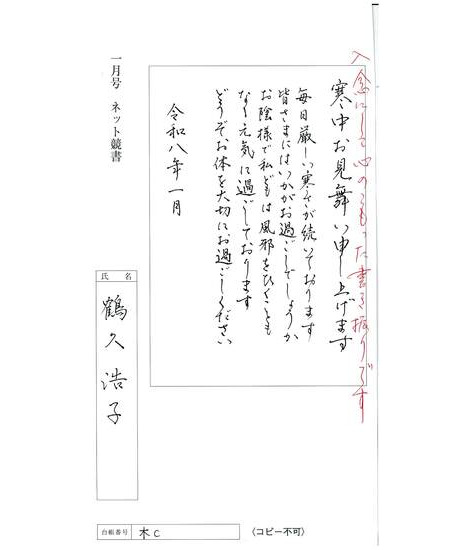 入念にして心のこもった書き振りです
寒中お見舞い申し上げます
毎日厳しい寒さが続いております
皆さまにはいかがお過ごしでしょうか
お陰様で私どもは風邪をひくことも
なく元気に過ごしております
どうぞお体を大切にお過ごしください
令和八年一月
一月号 ネット競書
氏名
鶴久浩子
台帳番号 木C
〈コピー不可〉